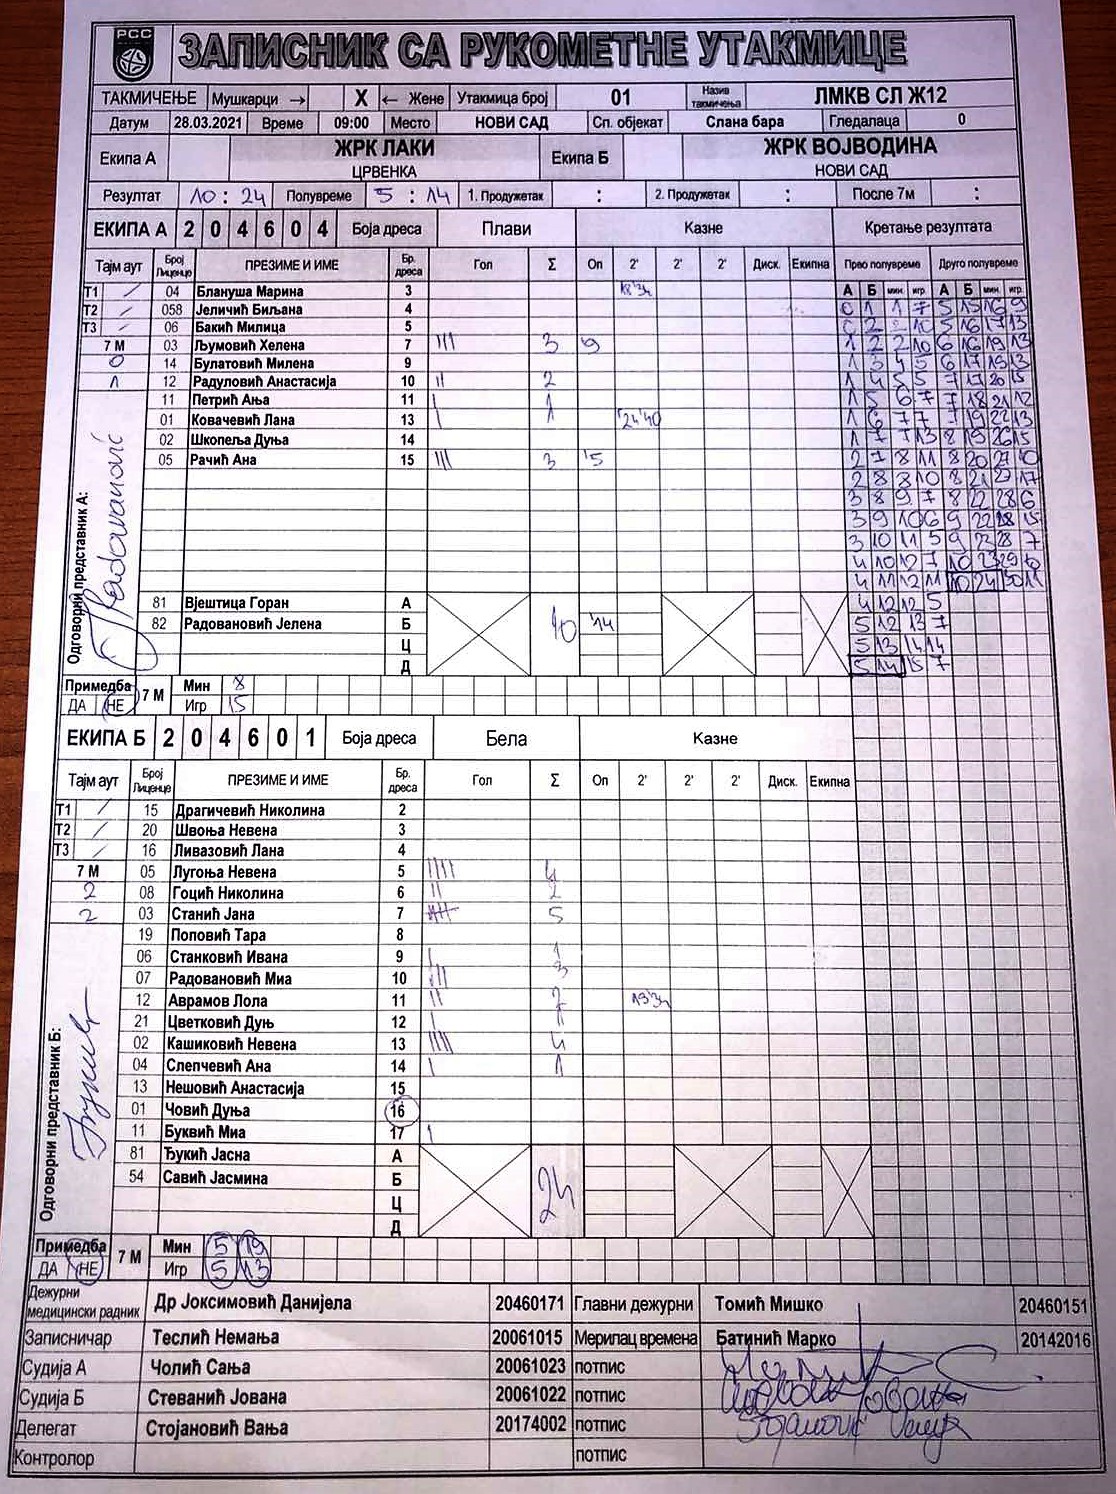 РСС
ЗАПИСНИК СА РУКОМЕТНЕ УТАКМИЦЕ
ТАКМИЧЕЊЕ Мушкарци → X ← Жене Утакмица број 01 Назив такмичења ЛМКВ СЛ Ж12
Датум 28.03.2021 Време 09:00 Место НОВИ САД Сп. објекат Слана бара Гледалаца 0
Екипа А ЖРК ЛАКИ ЦРВЕНКА Екипа Б ЖРК ВОЈВОДИНА НОВИ САД
Резултат 10 : 24 Полувреме 5 : 14 1. Продужетак : 2. Продужетак : После 7м :
ЕКИПА А 2 0 4 6 0 4 Боја дреса Плави Казне Кретање резултата
Тајм аут Број Лиценце ПРЕЗИМЕ И ИМЕ Бр. дреса Гол Σ Оп 2' 2' 2' Диск. Екипна Прво полувреме Друго полувреме
А Б мин. игр. А Б мин. игр.
Т1 / 04 Блануша Марина 3 18'34
Т2 / 058 Јеличић Биљана 4
Т3 / 06 Бакић Милица 5
7 М 03 Љумовић Хелена 7 III 3 '9
0 14 Булатовић Милена 9
1 12 Радуловић Анастасија 10 II 2
11 Петрић Ања 11 I 1
01 Ковачевић Лана 13 I 1 24'40
02 Шкопеља Дуња 14
05 Рачић Ана 15 III 3 '5
Одговорни представник А: Radovanović
81 Вјештица Горан А 10
82 Радовановић Јелена Б '14
Ц
Д
Примедба ДА НЕ 7 М Мин 8
Игр 15
0 1 1 7 5 15 16 9
0 2 2 10 5 16 17 13
1 2 2 10 6 16 19 13
1 3 4 5 6 17 19 13
1 4 5 5 7 17 20 5
1 5 6 7 7 18 21 12
1 6 7 7 7 19 22 13
1 7 7 13 8 19 26 15
2 7 8 11 8 20 27 10
2 8 8 10 8 21 27 17
3 8 9 7 8 22 28 6
3 9 10 6 9 22 28 15
3 10 11 5 9 23 28 7
4 10 12 7 10 23 29 10
4 11 12 11 10 24 30 11
4 12 12 5
5 12 13 7
5 13 14 14
5 14 15 7
ЕКИПА Б 2 0 4 6 0 1 Боја дреса Бела Казне
Тајм аут Број Лиценце ПРЕЗИМЕ И ИМЕ Бр. дреса Гол Σ Оп 2' 2' 2' Диск. Екипна
Т1 / 15 Драгичевић Николина 2
Т2 / 20 Швоња Невена 3
Т3 / 16 Ливазовић Лана 4
7 М 05 Лугоња Невена 5 IIII 4
2 08 Гоцић Николина 6 II 2
2 03 Станић Јана 7 IIII 5
19 Поповић Тара 8
06 Станковић Ивана 9 I 1
07 Радовановић Миа 10 III 3
12 Аврамов Лола 11 II 2 13'34
21 Цветковић Дуњ 12 I 1
02 Кашиковић Невена 13 IIII 4
04 Слепчевић Ана 14 I 1
13 Нешовић Анастасија 15
01 Човић Дуња 16
11 Буквић Миа 17 I
Одговорни представник Б:
81 Ђукић Јасна А 24
54 Савић Јасмина Б
Ц
Д
Примедба ДА НЕ 7 М Мин 5 19
Игр 5 13
Дежурни медицински радник Др Јоксимовић Данијела 20460171 Главни дежурни Томић Мишко 20460151
Записничар Теслић Немања 20061015 Мерилац времена Батинић Марко 20142016
Судија А Чолић Сања 20061023 потпис
Судија Б Стеванић Јована 20061022 потпис
Делегат Стојановић Вања 20174002 потпис Stojanović Vanja
Контролор потпис